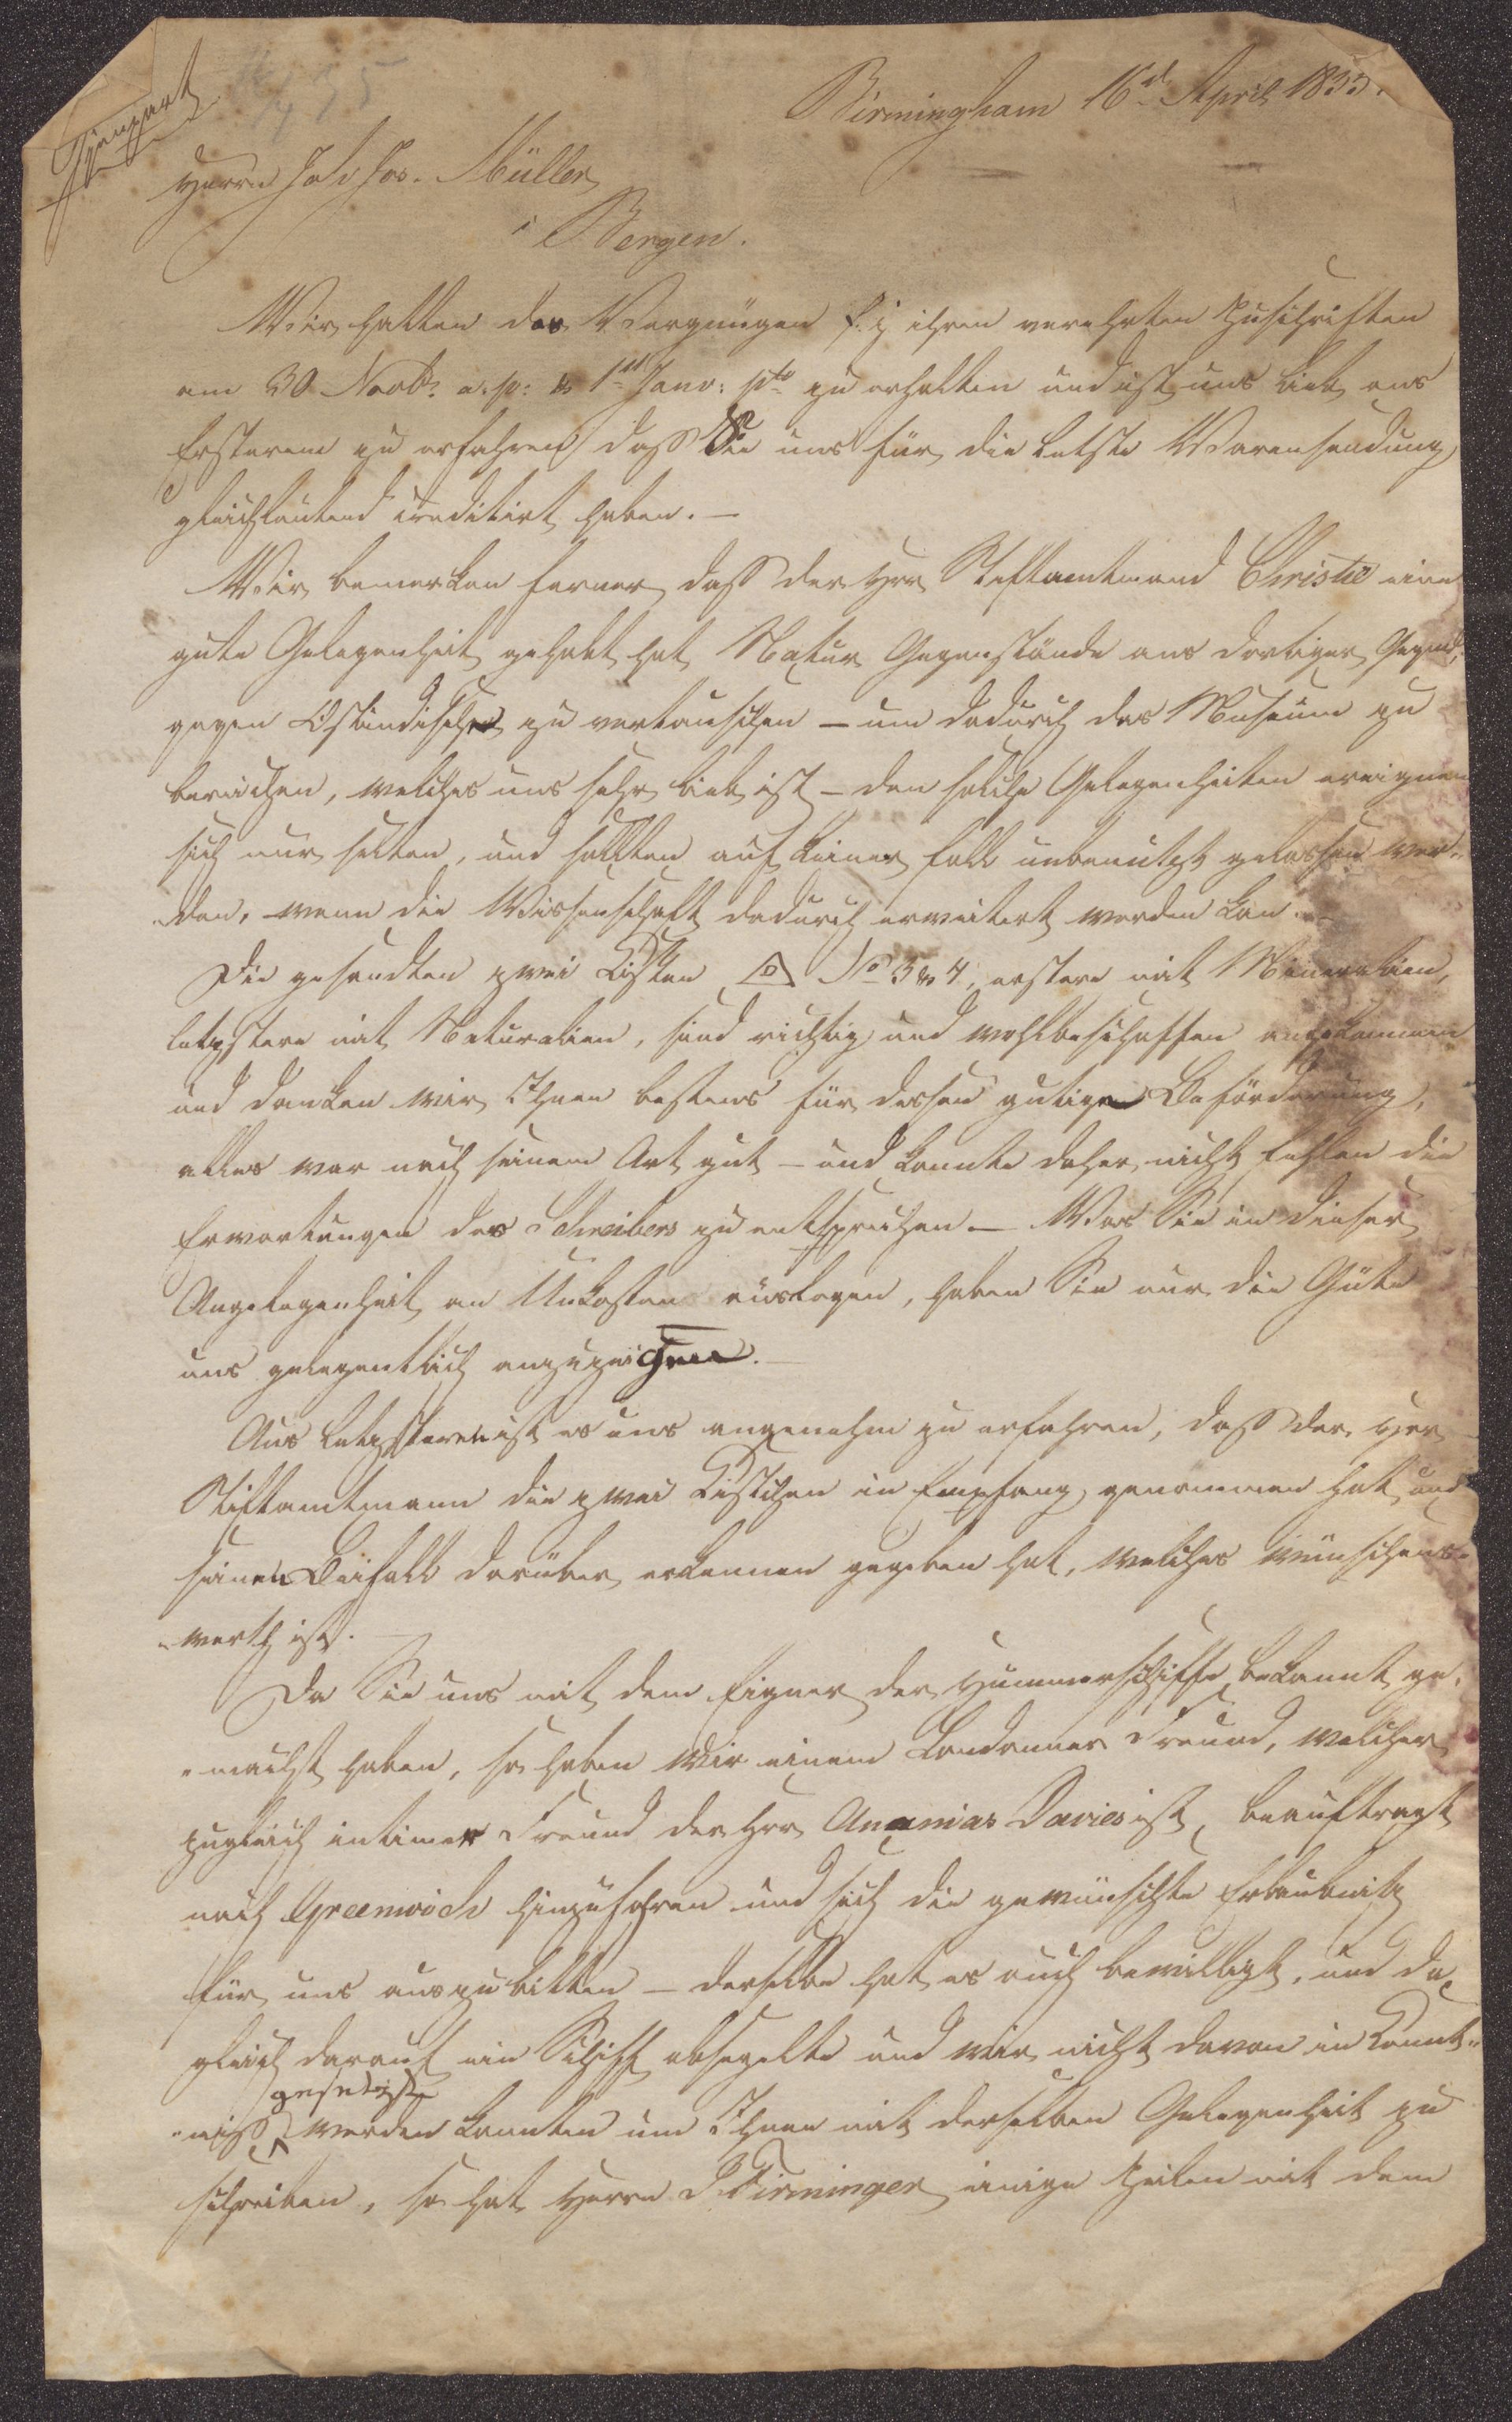 Birmingham 16d April 1833.
Herrn Joh Jos. Müller
i Bergen.
Wir hatten das Vergnügen ihren verehrten Zuschriften
am 30 Novbr a. p: & 1st Janr: pto zu erhalten und ist uns lieb aus
Ersterem zu erfahren daß Sie uns für die letzte Warensendung
gleichlautend creditirt haben. —
Wir bemerken ferner daß der Herr Stiftamtmand Christie eine
gute Gelegenheit gehabt hat Natur Gegenstände aus dortiger Gegend,
gegen Ostindische zu vertauschen — um dadurch das Museum zu
bereichen, welches uns sehr lieb ist — den solche Gelegenheiten ereignen
sich nur selten, und sollten auf keiner fall unbenutzt gelassen wer-
-den, wenn die Wissenschaft dadurch erweitert werden kan —
Die gesandten zwei Kisten No 3 & 4, erstere mit Mineralien,
letztere mit Naturalien, sind richtig und wohlbeschaffen angekommen
und danken wir Ihnen bestens für dessen gutigen Beförderung,
alles war nach seinem Art gut — und konnte daher nicht fehlen die
Erwartungen des Schreibers zu entsprechen — Was Sie in dieser
Angelegenheit an Unkosten auslagen, haben Sie nur die Güte
uns gelegentlich anzuzeigen. —
Aus letzteren ist es uns angenehm zu erfahren, daß der Herr
Stiftamtmann die zwei Kistchen in Empfang genommen hat und
seinen Beifall darüber erkennen gegeben hat, welches wünschens-
-werth ist. —
Da Sie uns mit dem Eigner der Hummerschiffe bekannt ge-
-macht haben, so haben wir einem Londonner Freund, welcher
zugleich intimer Freund des Hrr Ananias Davies ist, beauftragt
nach Greenwich hinzufahren und sich die gewünschte Erlaubniß
für uns auszubitten — derselbe hat es auch bewilligt, und da
gleich darauf ein Schiff absegelte und wir nicht davon in Kennt-
gesetzt
-niß werden konnten um Ihnen mit derselben Gelegenheit zu
schreiben, so hat Herrn Firminger einige Zeilen mit dem